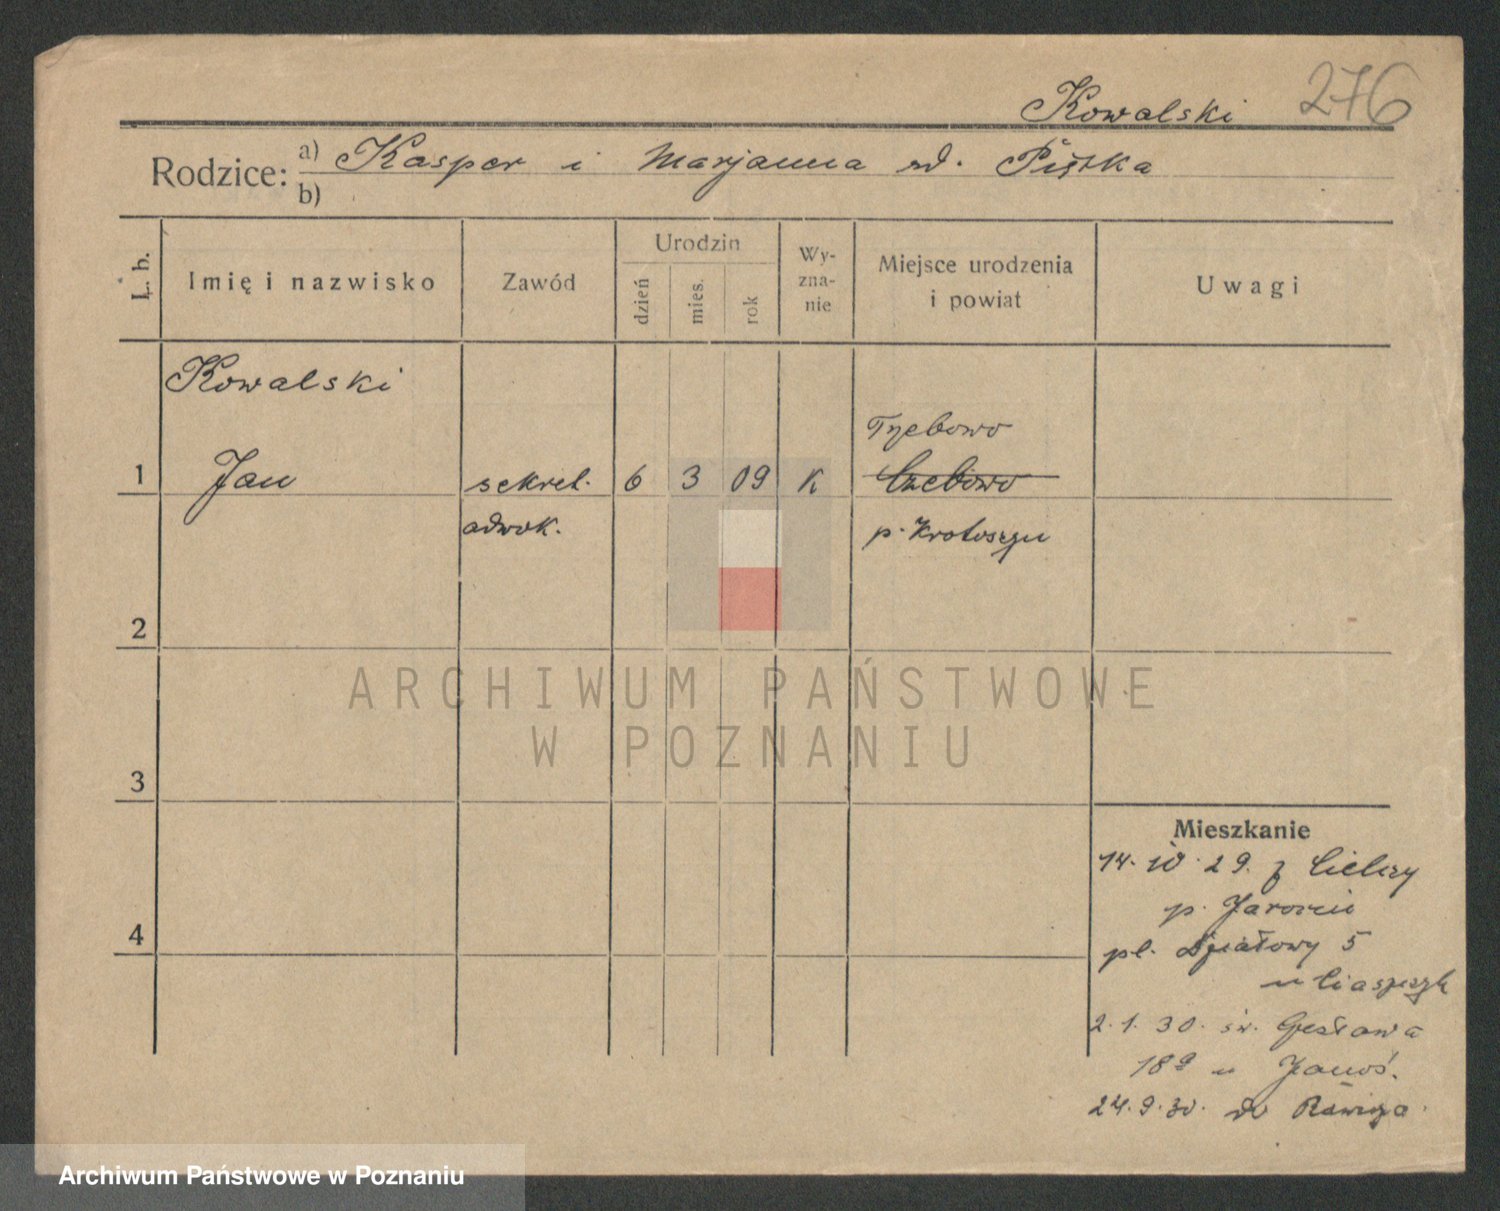 Kowalski 276
Rodzice: a) Kasper i Marjanna zd. Piętka
b)
L. b.
Imię i nazwisko
Zawód
Urodzin
dzień
mies.
rok
Wy-
zna-
nie
Miejsce urodzenia
i powiat
Uwagi
Kowalski
Trzebowo
1 Jan sekret. 6 3 09 K
adwok.
p. Krotoszyn
2
3
4
Mieszkanie
14. IV. 29. z Cielczy
p. Jarocin
pl. Działowy 5
u
2. 1. 30. św. Czesława
18 u Janoś.
24. 9. 30. do Rawicza
ARCHIWUM PAŃSTWOWE
W POZNANIU
Archiwum Państwowe w Poznaniu